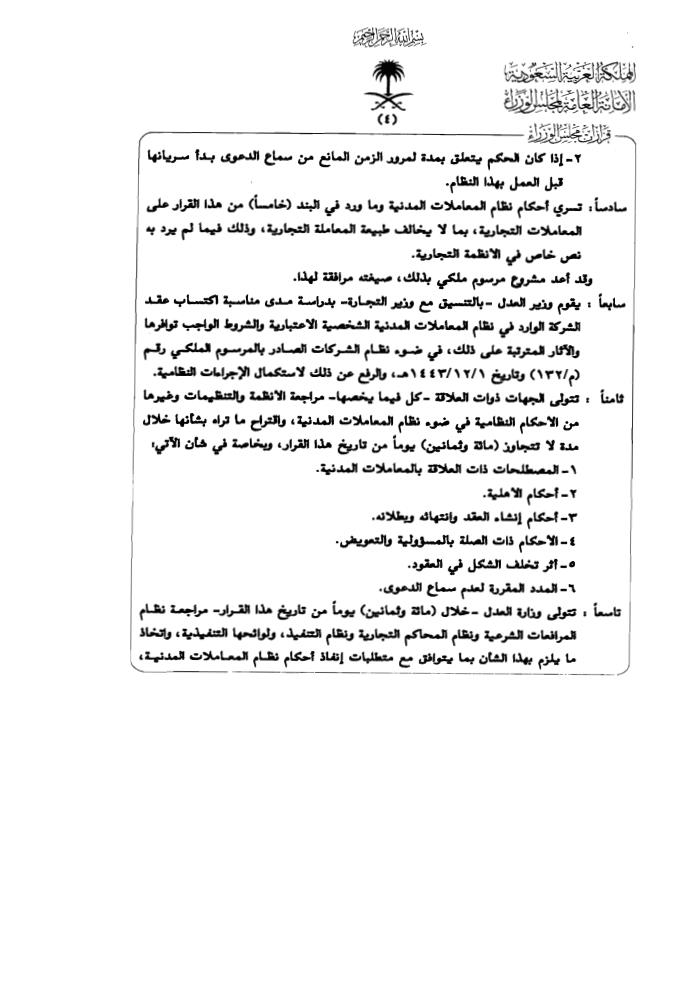 بسم الله الرحمن الرحيم
المملكة العربية السعودية
الأمانة العامة لمجلس الوزراء
(٤)
قرارات مجلس الوزراء
٢- إذا كان الحكم يتعلق بمدة لمرور الزمن المانع من سماع الدعوى بدأ سريانها
قبل العمل بهذا النظام.
سادساً : تسري أحكام نظام المعاملات المدنية وما ورد في البند (خامساً) من هذا القرار على
المعاملات التجارية، بما لا يخالف طبيعة المعاملة التجارية، وذلك فيما لم يرد به
نص خاص في الأنظمة التجارية.
وقد أعد مشروع مرسوم ملكي بذلك، صيغته مرافقة لهذا.
سابعاً : يقوم وزير العدل -بالتنسيق مع وزير التجارة- بدراسة مدى مناسبة اكتساب عقد
الشركة الوارد في نظام المعاملات المدنية الشخصية الاعتبارية والشروط الواجب توافرها
والآثار المترتبة على ذلك، في ضوء نظام الشركات الصادر بالمرسوم الملكي رقم
(م/١٣٢) وتاريخ ١٤٤٣/١٢/١هـ، والرفع عن ذلك لاستكمال الإجراءات النظامية.
ثامناً : تتولى الجهات ذوات العلاقة -كل فيما يخصها- مراجعة الأنظمة والتنظيمات وغيرها
من الأحكام النظامية في ضوء نظام المعاملات المدنية، واقتراح ما تراه بشأنها خلال
مدة لا تتجاوز (مائة وثمانين) يوماً من تاريخ هذا القرار، وبخاصة في شأن الآتي:
١- المصطلحات ذات العلاقة بالمعاملات المدنية.
٢- أحكام الأهلية.
٣- أحكام إنشاء العقد وانتهائه وبطلانه.
٤- الأحكام ذات الصلة بالمسؤولية والتعويض.
٥- أثر تخلف الشكل في العقود.
٦- المدد المقررة لعدم سماع الدعوى.
تاسعاً : تتولى وزارة العدل -خلال (مائة وثمانين) يوماً من تاريخ هذا القرار- مراجعة نظام
المرافعات الشرعية ونظام المحاكم التجارية ونظام التنفيذ، ولوائحها التنفيذية، واتخاذ
ما يلزم بهذا الشأن بما يتوافق مع متطلبات إنفاذ أحكام نظام المعاملات المدنية،